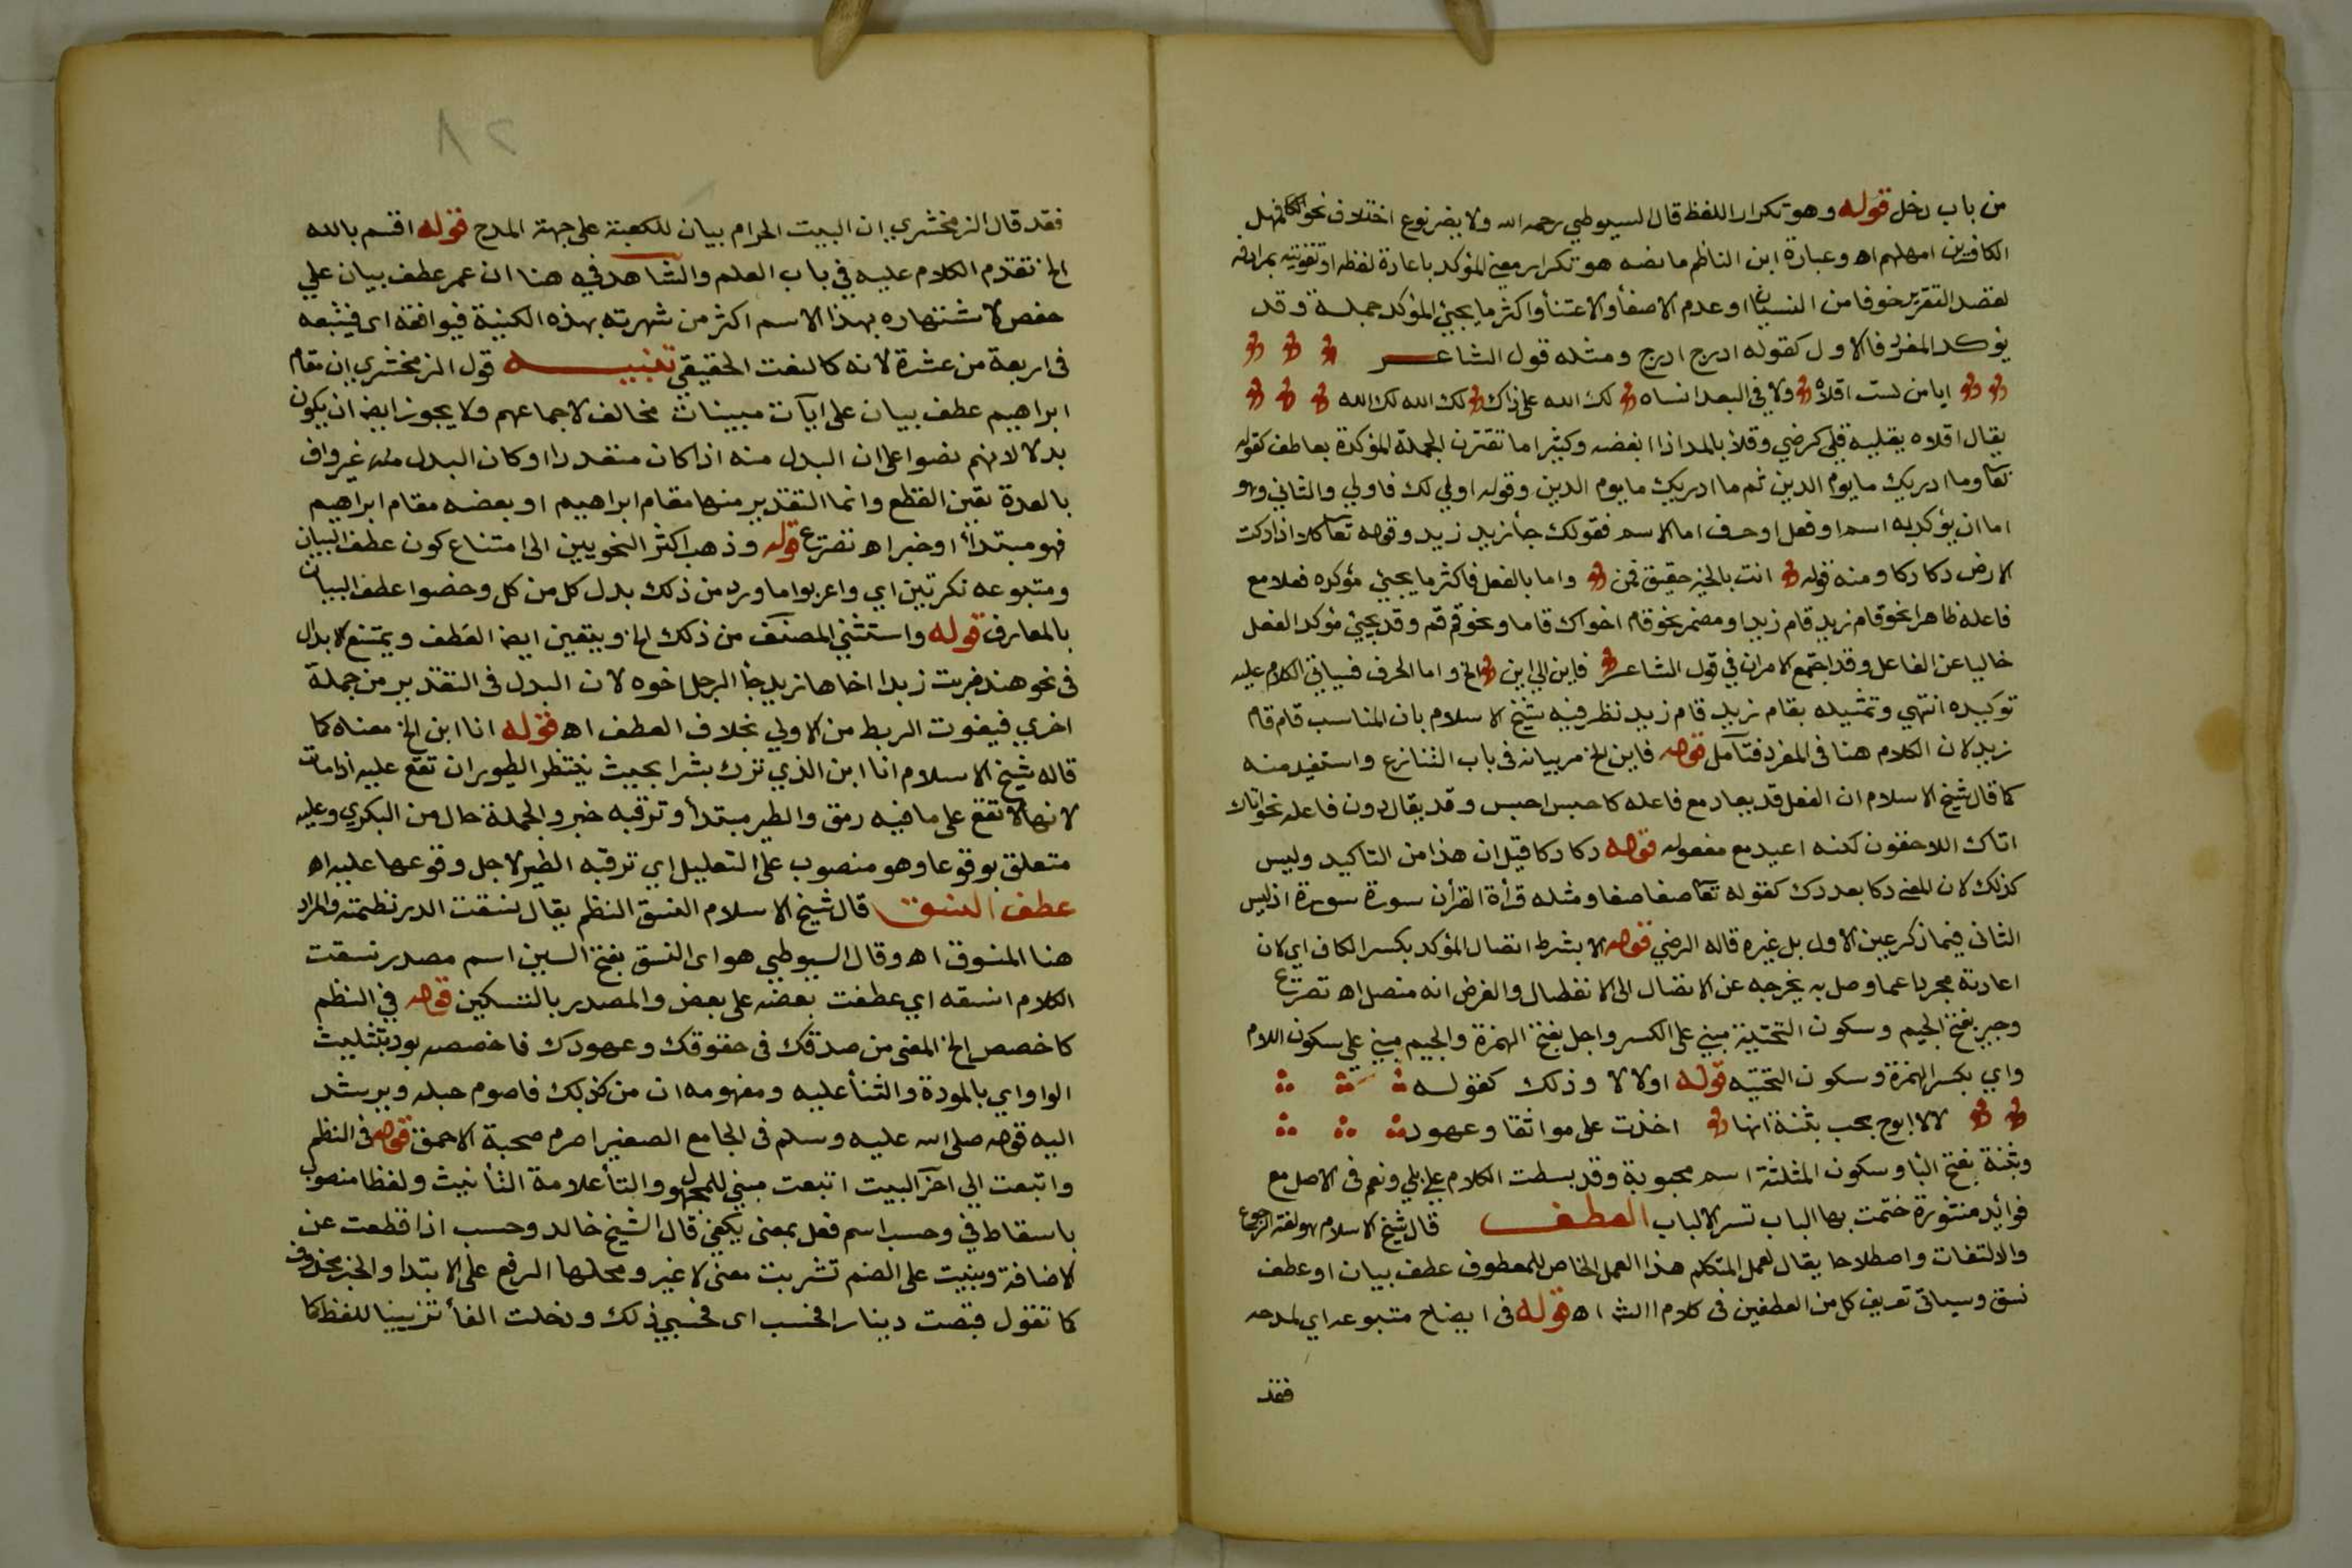 من باب دخل قوله وهو تكرار اللفظ قال السيوطي رحمه الله ولا يضر نوع اختلاف نحو فمهل
الكافرين امهلهم اه وعبارة ابن الناظم ما نصه هو تكرار معنى المؤكد باعادة لفظه او تقويته بمرادفه
لقصد التقرير خوفا من النسيان او عدم الاصغأ والاعتنأ واكثر ما يجيئ المؤكد جملة وقد
يؤكد المفرد فالاول كقوله ادرج ادرج ومثله قول الشاعر
ايا من لست اقلاه ولا في البعد انساه لك الله على ذاك لك الله لك الله
يقال اقلاه يقليه قلي كرضي وقلاء بالمد اذا ابغضه وكثيرا ما تقترن الجملة المؤكدة بعاطف كقوله
تعا وما ادريك ما يوم الدين ثم ما ادريك ما يوم الدين وقوله اولي لك فاولي والثاني وهو
اما ان يؤكد به اسم او فعل او حرف اما الاسم فقولك جأ زيد زيد وقوله تعا كلا اذا دكت
الارض دكا دكا ومنه قوله انت بالخير حقيق قمن واما بالفعل فاكثر ما يجيئ مؤكده فعلا مع
فاعله ظاهرا نحو قام زيد قام زيد او مضمر نحو قام اخواك قاما ونحو قم قم وقد يجيئ مؤكد الفعل
خاليا عن الفاعل وقد اجتمع الامران في قول الشاعر فاين الي اين الخ واما الحرف فسياتي الكلام عليه
توكيده انتهي وتمثيله بقام زيد قام زيد نظر فيه شيخ الاسلام بان المناسب قام قام
زيد لان الكلام هنا في المفرد فتأمل قوله فاين الخ مر بيانه في باب التنازع واستفيد منه
كما قال شيخ الاسلام ان الفعل قد يعاد مع فاعله كاحبس احبس وقد يقال دون فاعله نحو اتاك
اتاك اللاحقون لكنه اعيد مع مفعوله قوله دكا دكا قيل ان هذا من التاكيد وليس
كذلك لان المعنى دكا بعد دك كقوله تعا صفا صفا ومثله قرأة القرأن سورة سورة اذ ليس
الثاني فيما ذكر عين الاول بل غيره قاله الرضي قوله الا بشرط اتصال المؤكد بكسر الكاف اي لان
اعادته مجردا عما وصل به يخرجه عن الاتصال الى الانفصال والفرض انه متصل اه تصريح
وجير بفتح الجيم وسكون التحتية مبني على الكسر واجل بفتح الهمزة والجيم مبني على سكون اللام
واي بكسر الهمزة وسكون التحتيه قوله او لا لا وذلك كقوله
لا لا ابوح بحب بثنة انها اخذت على مواثقا وعهود
وبثنة بفتح البا وسكون المثلثة اسم محبوبة وقد بسطت الكلام علي بلي ونعم في الاصل مع
فوائد منثورة ختمت بها الباب تسر الالباب العطف قال شيخ الاسلام هو لغة الرجوع
والالتفات واصطلاحا يقال لعمل المتكلم هذا العمل الخاص للمعطوف عطف بيان او عطف
نسق وسياتي تعريف كل من العطفين في كلام الش اه قوله في ايضاح متبوعه اي لمدحه
فقد
٢٨
فقد قال الزمخشري ان البيت الحرام بيان للكعبة على جهة المدح قوله اقسم بالله
الخ تقدم الكلام عليه في باب العلم والشاهد فيه هنا ان عمر عطف بيان علي
حفص لاشتهاره بهذا الاسم اكثر من شهرته بهذه الكنية فيوافقه اي فيتبعه
في اربعة من عشرة لانه كالنعت الحقيقي تنبيه قول الزمخشري ان مقام
ابراهيم عطف بيان على ايات مبينات مخالف لاجماعهم ولا يجوز ايضا ان يكون
بدلا لانهم نصوا على ان البدل منه اذا كان متعددا وكان البدل منه غير واف
بالعدة تعين القطع وانما التقدير منها مقام ابراهيم او بعضه مقام ابراهيم
فهو مبتدأ او خبر اه تصريح قوله وذهب اكثر النحويين الى امتناع كون عطف البيان
ومتبوعه نكرتين اي واعربوا ما ورد من ذلك بدل كل من كل وخصوا عطف البيان
بالمعارف قوله واستثني المصنف من ذلك الخ ويتعين ايضا العطف ويمتنع الابدال
في نحو هند ضربت زيدا اخاها زيد جأ الرجل اخوه لان البدل في التقدير من جملة
اخري فيفوت الربط من الاولي بخلاف العطف اه قوله انا ابن الخ معناه كما
قاله شيخ الاسلام انا ابن الذي ترك بشرا بحيث ينتظر الطيور ان تقع عليه اذا مات
لانها لا تقع على ما فيه رمق والطير مبتدأ وترقبه خبر والجملة حال من البكري وعليه
متعلق بوقوعا وهو منصوب على التعليل اي ترقبه الطير لاجل وقوعها عليه اه
عطف النسق قال شيخ الاسلام النسق النظم يقال نسقت الدر نظمته والمراد
هنا المنسوق اه وقال السيوطي هو اي النسق بفتح السين اسم مصدر نسقت
الكلام انسقه اي عطفت بعضه على بعض والمصدر بالتسكين قوله في النظم
كاخصص الخ المعنى من صدقك في حقوقك وعهودك فاخصصه بود بتثليث
الواو اي بالمودة والثنأ عليه ومفهومه ان من كذبك فاصرم حبله ويرشد
اليه قوله صلى الله عليه وسلم في الجامع الصغير اصرم صحبة الاحمق قوله في النظم
واتبعت الي اخر البيت اتبعت مبني للمجهول والتأ علامة التأنيث ولفظا منصوب
باسقاط في وحسب اسم فعل بمعنى يكفي قال الشيخ خالد وحسب اذا قطعت عن
الاضافة وبنيت على الضم تشربت معنى لا غير ومحلها الرفع على الابتدا والخبر محذوف
كما تقول قبضت دينارا فحسب اي فحسبي ذلك ودخلت الفأ تزيينا للفظ كما